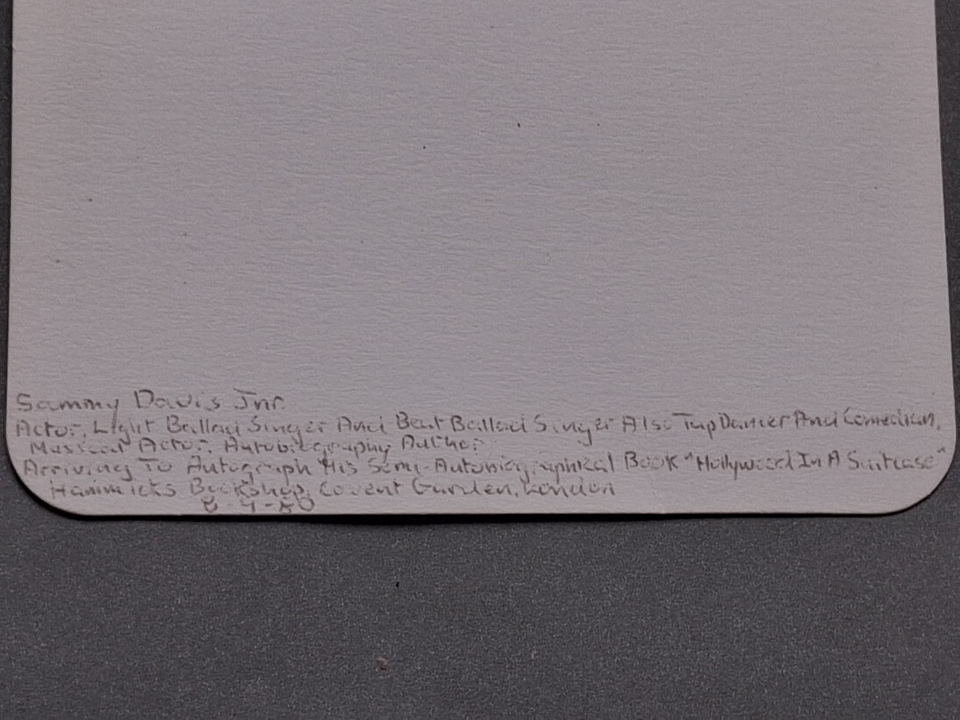 Sammy Davis Jnr.
Actor, Light Ballad Singer And Beat Ballad Singer Also Tap Dancer And Comedian,
Musical Actor, Autobiography Author
Arriving To Autograph His Semi-Autobiographical Book "Hollywood In A Suitcase"
Hammicks Bookshop, Covent Garden, London
8-9-80